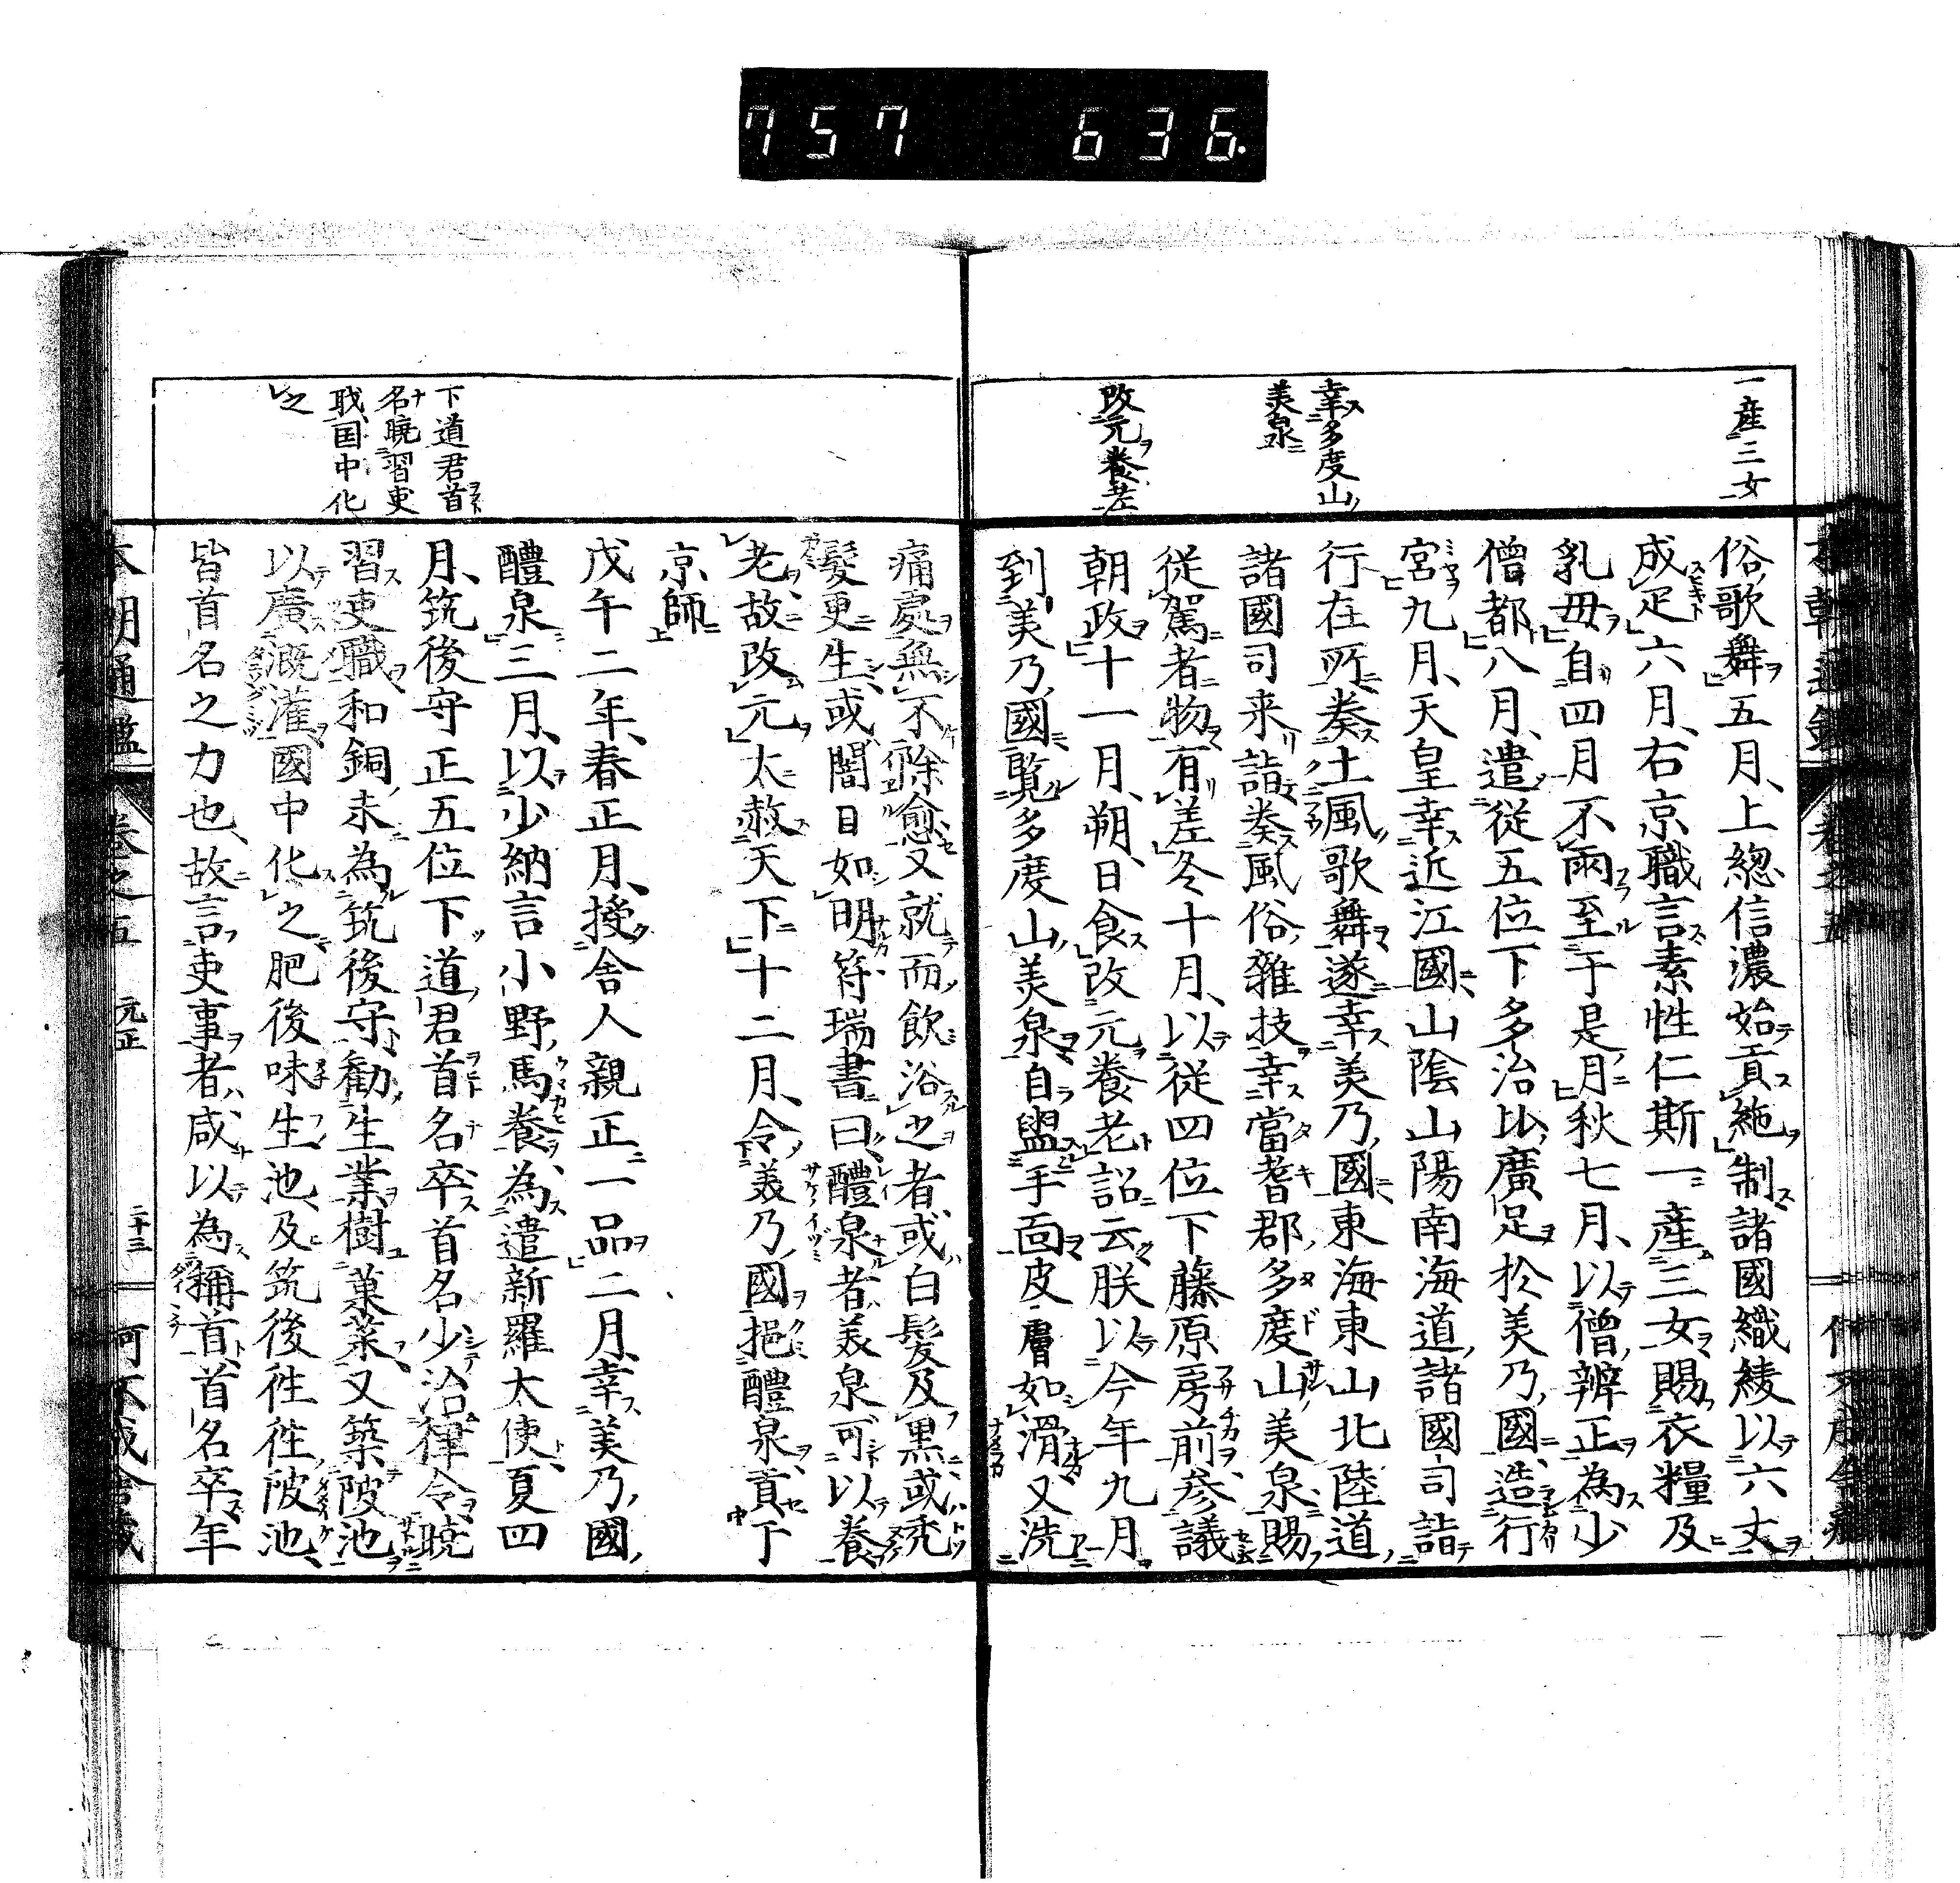 757 636.
一産三女
幸多度山
美泉
改元養老
俗歌舞五月上總信濃始貢絁制諸國織綾以六丈
成疋六月右京職言素性仁斯一産三女賜衣糧及
乳母自四月不雨至于是月秋七月以僧辨正為少
僧都八月遣從五位下多治比廣足於美乃國造行
宮九月天皇幸近江國山陰山陽南海道諸國司詣
行在所奏土風歌舞遂幸美乃國東海東山北陸道
諸國司来詣奏風俗雜技幸當耆郡多度山美泉賜
從駕者物有差冬十月以従四位下藤原房前参議
朝政十一月朔日食改元養老詔云朕以今年九月
到美乃國覧多度山美泉自盥手面皮膚如滑又洗
下道君首
名暁習吏
戝国中化
之
痛處無不除愈又就而飲浴之者或白髮及黒或禿
髮更生或闇目如明符瑞書曰醴泉者美泉可以養
老故改元太赦天下十二月令美乃國挹醴泉貢于
京師
戊午二年春正月授舍人親正一品二月幸美乃國
醴泉三月以少納言小野馬養為遣新羅大使夏四
月筑後守正五位下道君首名卒首名少治律令暁
習吏職和銅末為筑後守勸生業樹菓菜又築陂池
以廣漑灌國中化之肥後味生池及筑後徃徃陂池
皆首名之力也故言吏事者咸以為稱首首名卒年
本朝通鑑 卷之五 元正 二十三